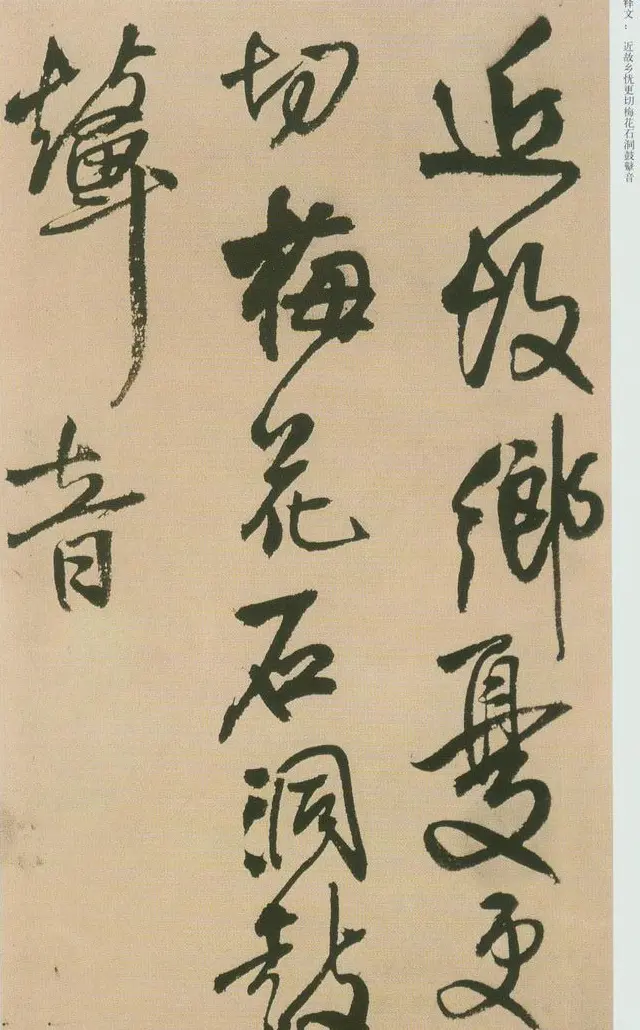 释文：近故乡忧更切梅花石洞鼓鼙音
近故鄉憂更
切梅花石洞鼓
鼙音